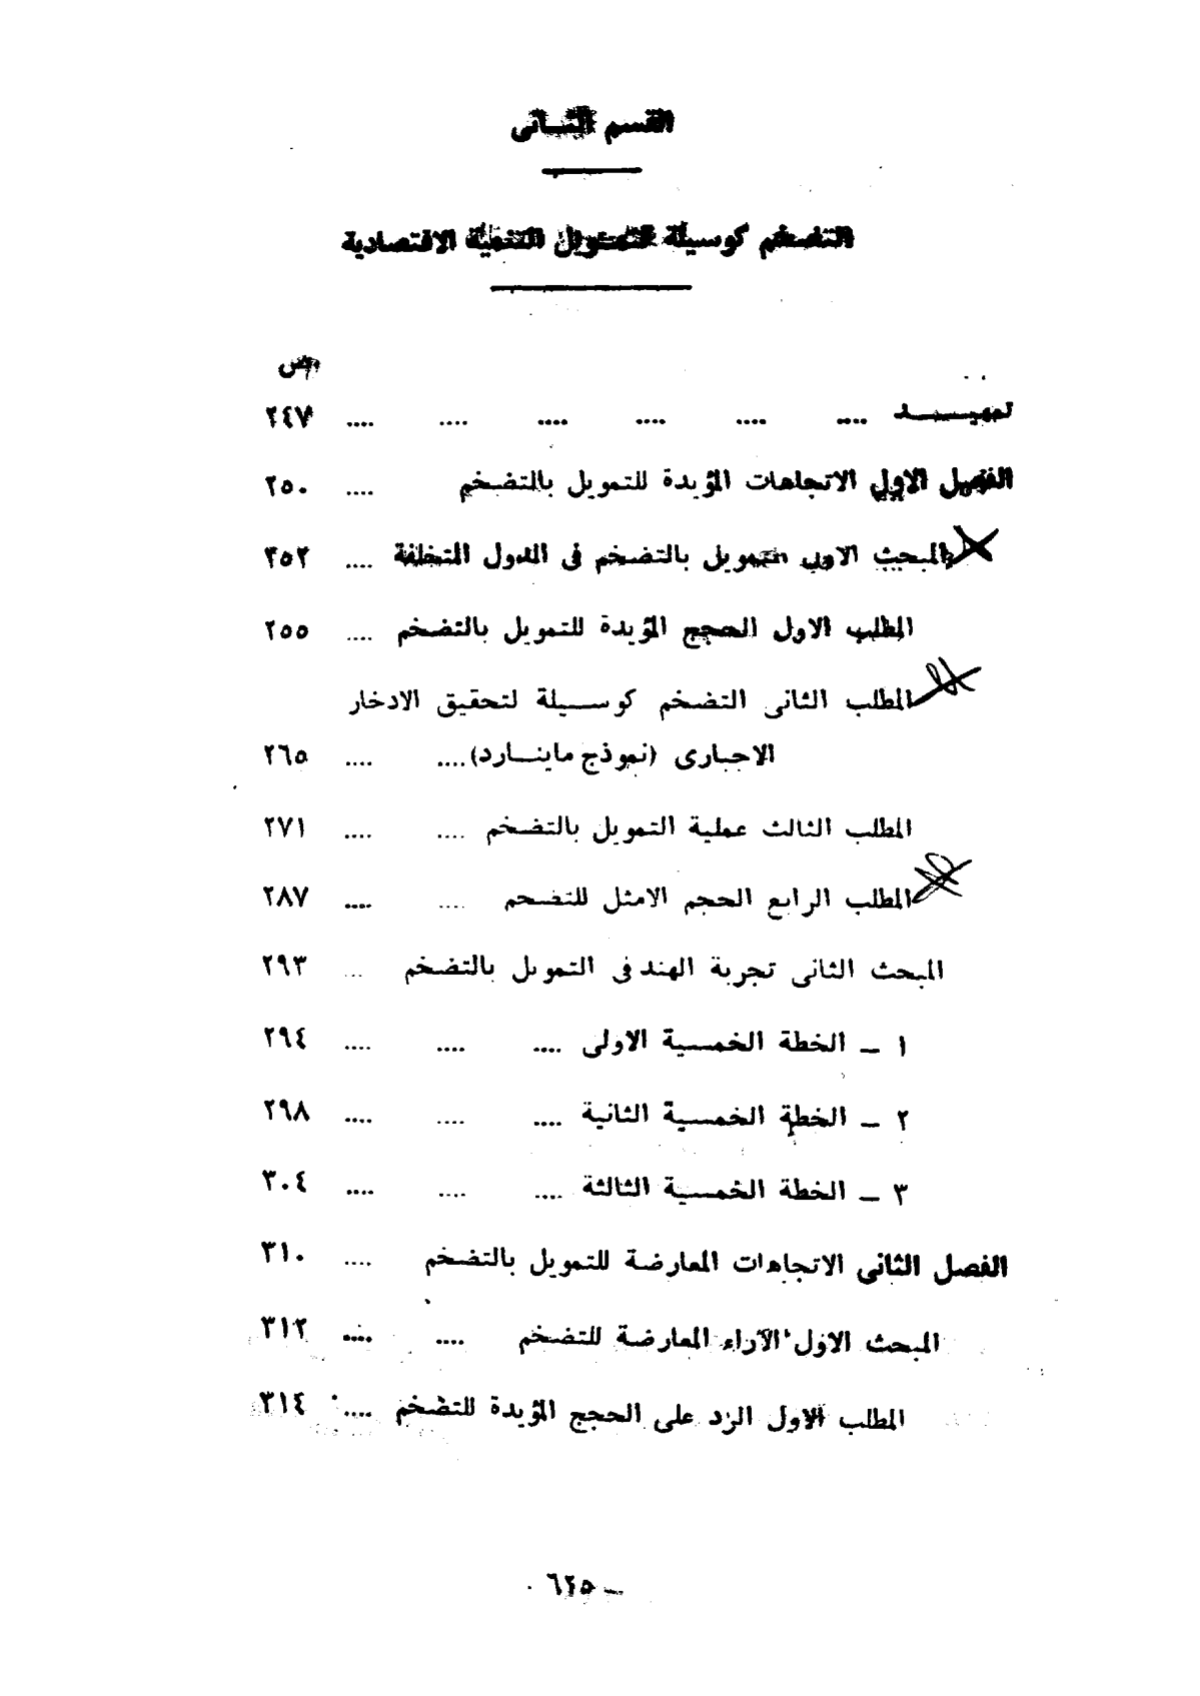 القسم الثانى
التضخم كوسيلة لتمويل التنمية الاقتصادية
ص
تمهيــــد .... .... .... .... .... .... ٢٤٧
الفصل الاول الاتجاهات المؤيدة للتمويل بالتضخم .... ٢٥٠
المبحث الاول التمويل بالتضخم فى الدول المتخلفة .... ٢٥٢
المطلب الاول الحجج المؤيدة للتمويل بالتضخم .... ٢٥٥
المطلب الثانى التضخم كوسيلة لتحقيق الادخار
الاجبارى (نموذج ماينارد) .... .... ٢٦٥
المطلب الثالث عملية التمويل بالتضخم .... .... ٢٧١
المطلب الرابع الحجم الامثل للتضخم .... .... ٢٨٧
المبحث الثانى تجربة الهند فى التمويل بالتضخم ... ٢٩٣
١ ـ الخطة الخمسية الاولى .... .... .... ٢٩٤
٢ ـ الخطة الخمسية الثانية .... .... .... ٢٩٨
٣ ـ الخطة الخمسية الثالثة .... .... .... ٣٠٤
الفصل الثانى الاتجاهات المعارضة للتمويل بالتضخم .... ٣١٠
المبحث الاول الآراء المعارضة للتضخم .... .... ٣١٢
المطلب الاول الرد على الحجج المؤيدة للتضخم .... ٣١٤
ـ ٦٢٥ .